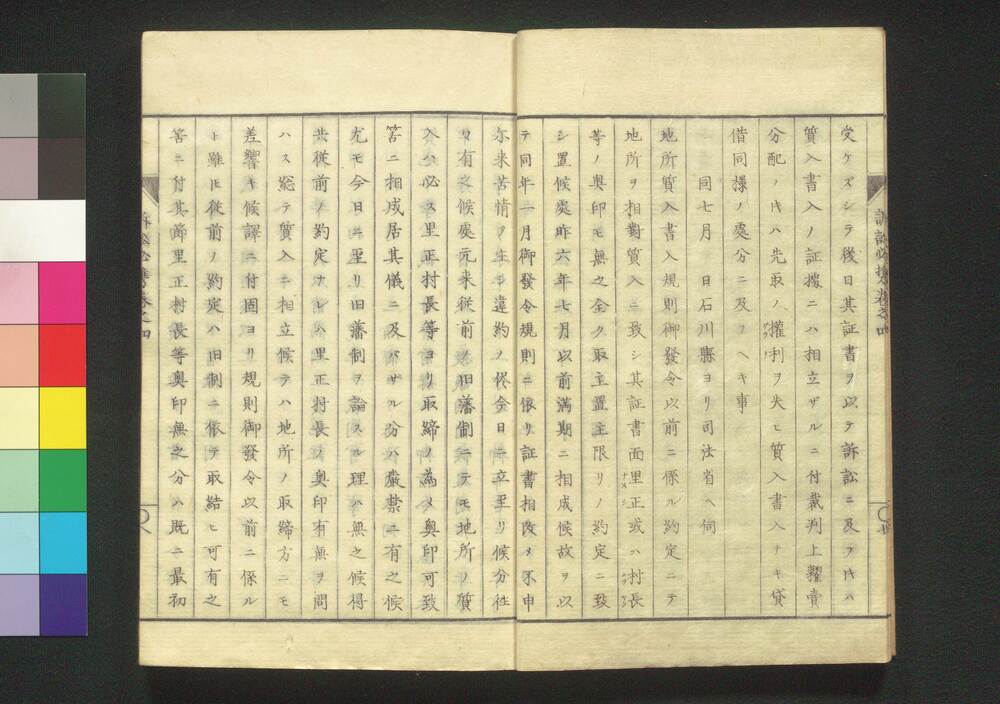 訴訟必携巻之四
受ケズシテ後日其証書ヲ以テ訴訟ニ及フ𪜈ハ
質入書入ノ証據ニハ相立ザルニ付裁判上糶賣
分配ノ𪜈ハ先取ノ權利ヲ失ヒ質入書入ナキ貸
借同樣ノ處分ニ及フヘキ事
同七月　日石川縣ヨリ司法省ヘ伺
地所質入書入規則御發令以前ニ係ル約定ニテ
地所ヲ相對質入ニ致シ其証書面里正或ハ村長
等ノ奥印モ無之全ク取主置主限リノ約定ニ致
シ置候處昨六年七月以前滿期ニ相成候故ヲ以
テ同年一月御發令規則ニ依リ証書相改メ不申
尓来苦情ヲ生シ違約ノ侭今日ニ立至リ候分徃
々有之候處元来従前ノ旧藩制ニテモ地所ノ質
入ハ必ス里正村長等ヨリ取締ノ為メ奥印可致
筈ニ相成居其儀ニ及バザル分ハ嚴禁ニ有之候
尤モ今日ニ至リ旧藩制ヲ論スル理ハ無之候得
共従前ノ約定ナレハ里正村長ノ奥印有無ヲ問
ハス総テ質入ニ相立候テハ地所ノ取締方ニモ
差響キ候譯ニ付固ヨリ規則御發令以前ニ係ル
ト雖𪜈従前ノ約定ハ旧制ニ依テ取結ヒ可有之
筈ニ付其節里正村長等奥印無之分ハ既ニ最初
訴訟必携巻之四